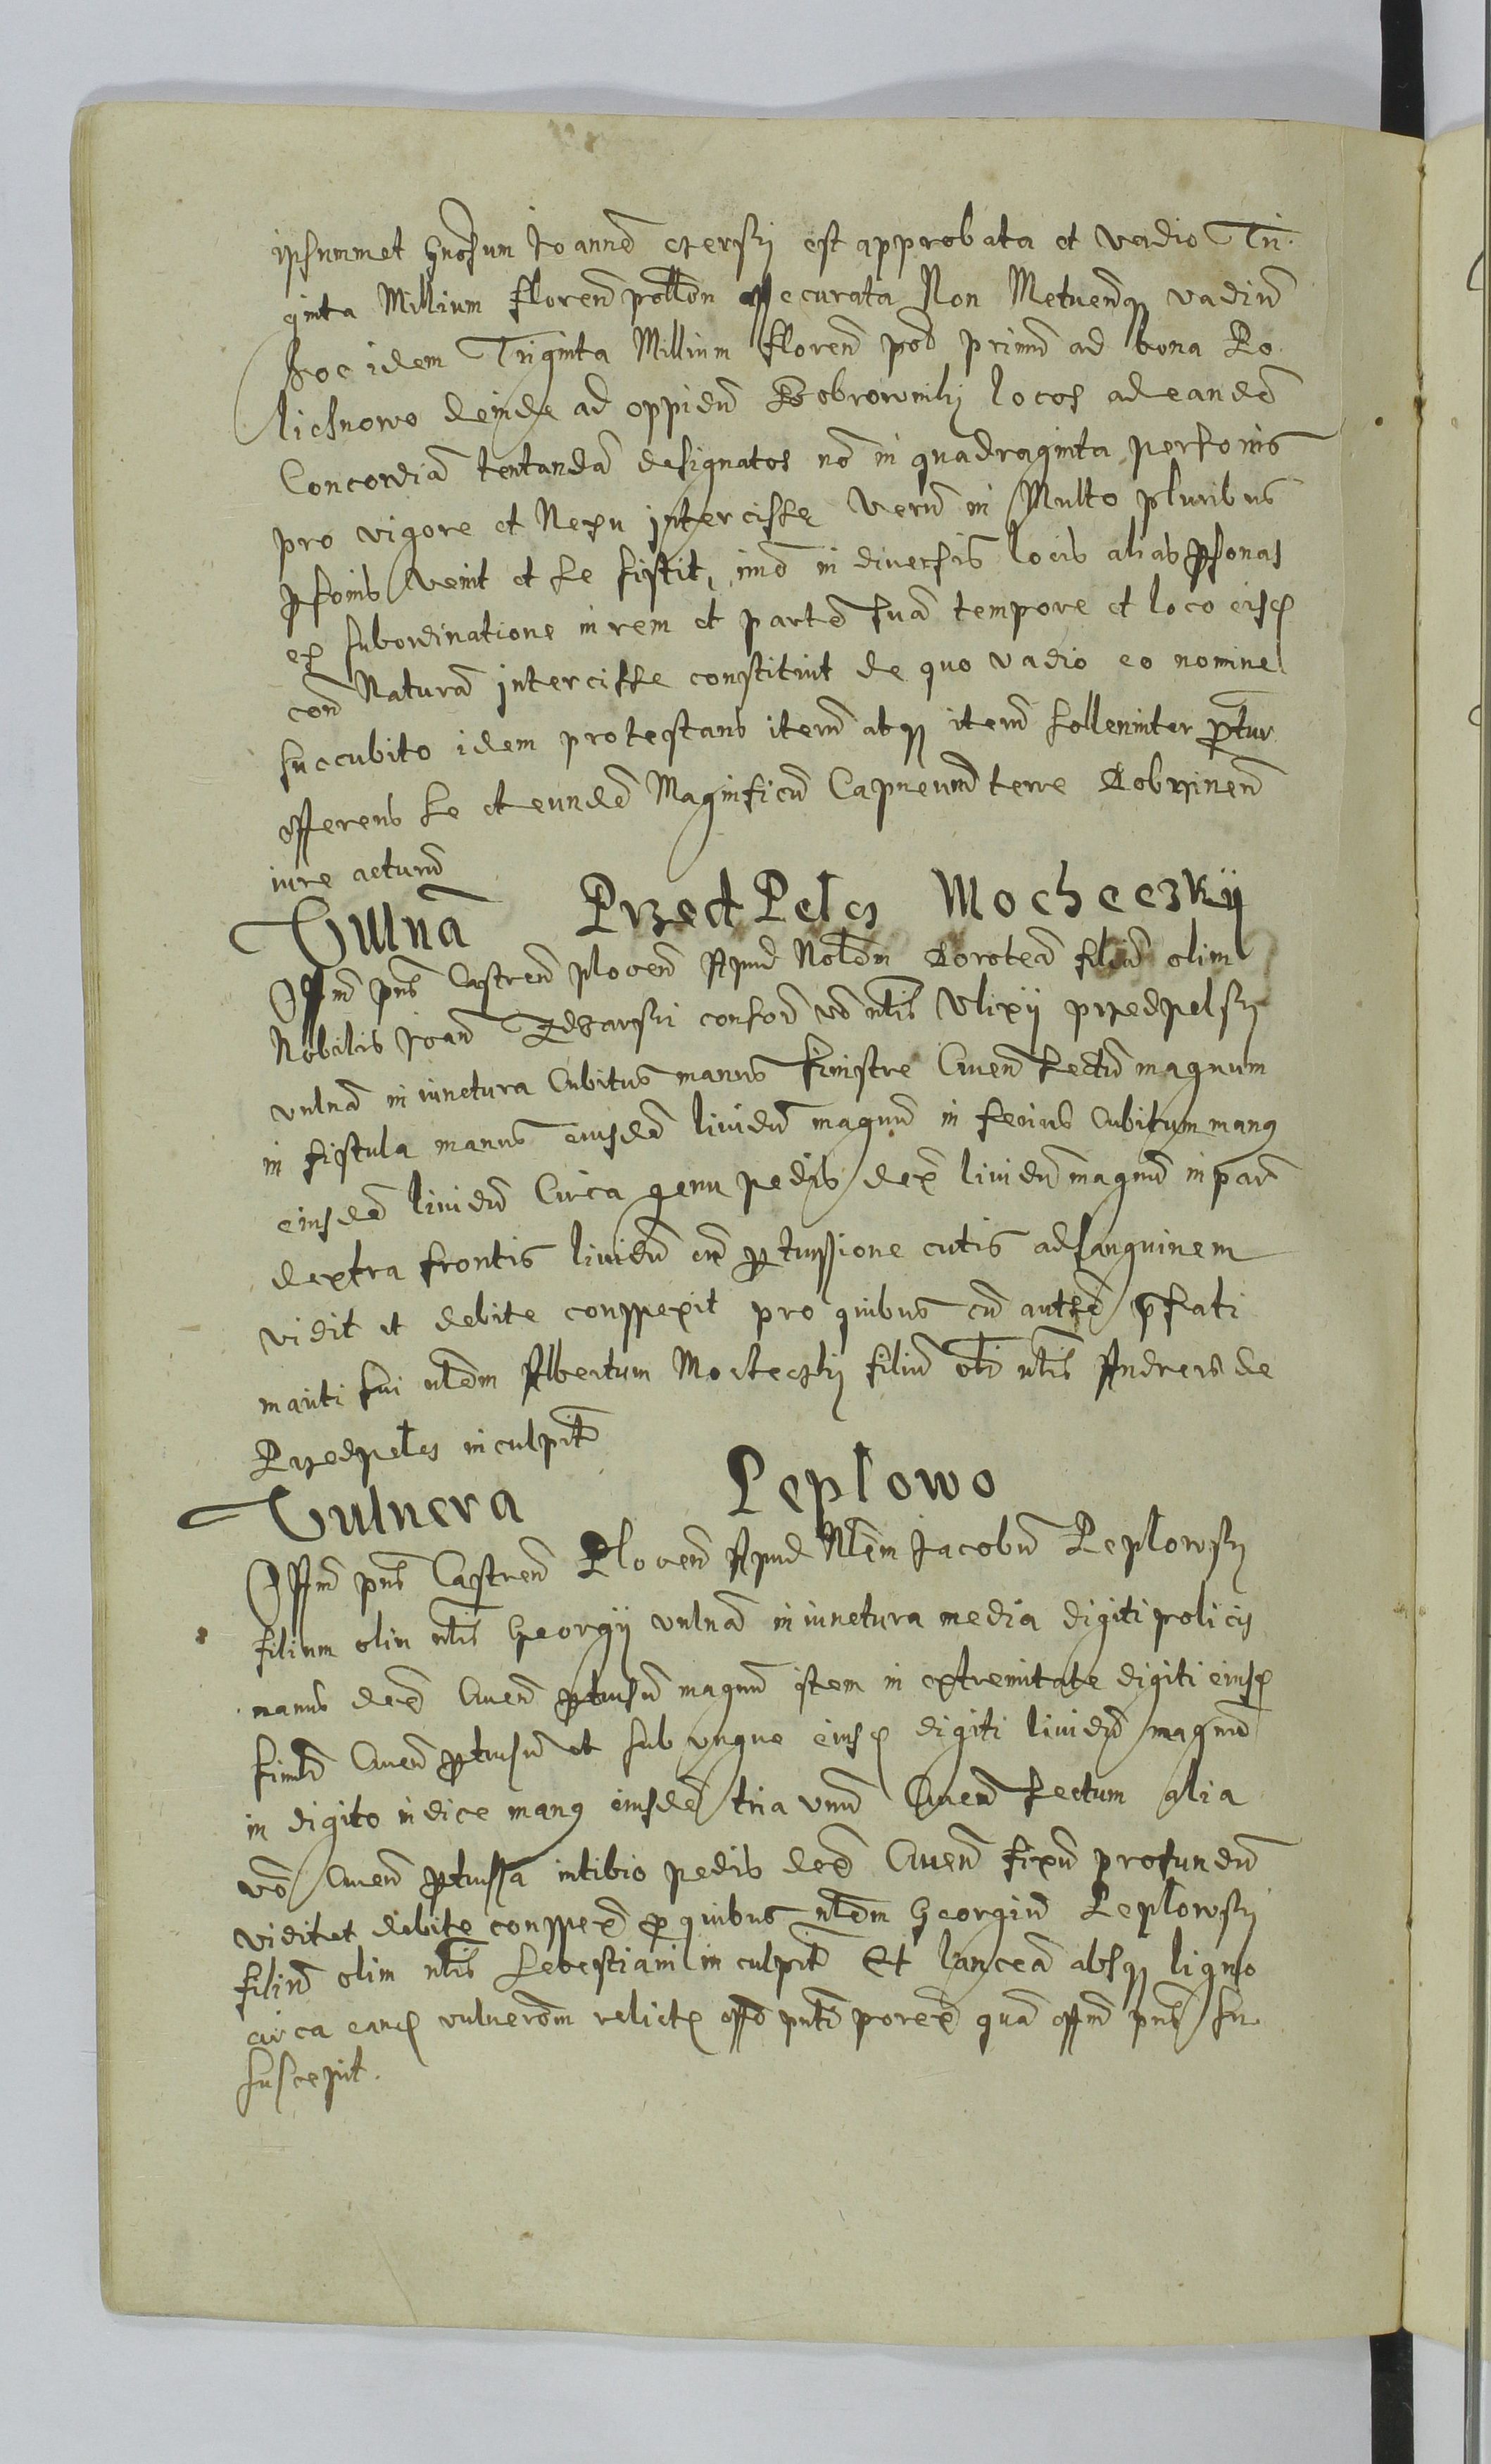 ipsummet Gnosum Joanne est approbata et vadio Tri
ginta Millium floren pollon assecurata Non Metuenq vadiu
hoc idem Triginta Millium floren pol primu ad bona Ro
lichnowo deinde ad oppidu Bobrowniki locos ad eande
Concordia tentanda designatos no in quadraginta personis
pro vigore et Nexu intercisse veru in Multo pluribus
psonis venit et se sistit, imo in diversis locis alias psonas
ex subordinatione in rem et parte sua tempore et loco eisd
con Natura intercisse constituit de quo vadio eo nomine
succubito idem protestans iteru atq iteru sollenniter ptur
offerens se et eunde Magnificu Capneum terre Dobrzinen
iure acturu
Vulna Przed Pelcz Mocheczky
Offm pns Castren plocen Apud Noblem Dorotea filia olim
Nobilis Joan consor vo nlis Vlixij przedpelsky
vulna in iunctura Cubitus manus sinistre Cruen sectu magnum
in fistula manus eiusde lividu magnu in Cubitum manq
eiusde lividu Circa genu pedis dex lividu magnu in par
dextra frontis lividu cu ptussione cutis ad sanguinem
vidit et debite conspexit pro quibus cu autte pfati
mariti sui nlem Albertum Mocheczky filiu oli nlis Andreis de
Przedpelcz inculpit
Vulnera Peplowo
Offm pns Castren Plocen Apud Nlem Jacobu Peplowsky
filium olim nlis Georgij vulna in iunctura media digiti policis
manus dex Cruen ptusu magnu item in extremitate digiti eiusd
simile Cruen ptusu et sub ungue eiusd digiti lividu magnu
in digito indice manq eiusde tria unu Cruen sectum alia
vo Cruen ptussa in tibio pedis dex Cruen fixu profundu
vidit et debite conspex p quibus nlem Georgiu Peplowsky
filiu olim nlis Sebestiani inculpit Et lancea absq ligno
circa eand vulnerom relict offo pnti porex qua offm pns su
suscepit.